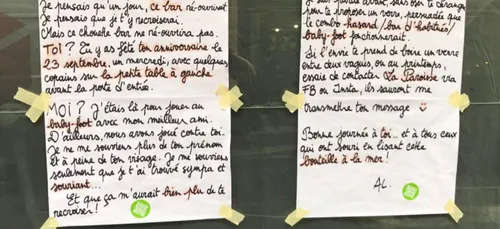 Je pensais qu'un jour, ce bar ré-ouvrirait
Je pensais que je t'y recroiserai.
Mais ce chouette bar ne ré-ouvrira pas.
TOI? Tu y as fêté ton anniversaire le
23 septembre, un mercredi, avec quelques
copains sur la petite table à gauche
avant la porte d'entrée.
MOI? J'étais là pour jouer au
baby-foot avec mon meilleur ami.
D'ailleurs, nous avons joué contre toi.
Je ne me souviens plus de ton prénom
et à peine de ton visage. Je me souviens
seulement que je t'ai trouvé sympa et
souriant...
Et que ça m'aurait bien plu de te
recroiser!
pour te proposer un verre, persuadée que
le combo hasard/bar d'habitués/
baby-foot fonctionnerait.
Si l'envie te prend de boire un verre
entre deux vagues, ou au printemps,
essaie de contacter La Paroisse via
FB ou Insta, ils sauront me
transmettre ton message
Bonne journée à toi... et à tous ceux
qui ont souri en lisant cette
bouteille à la mer!
AL.